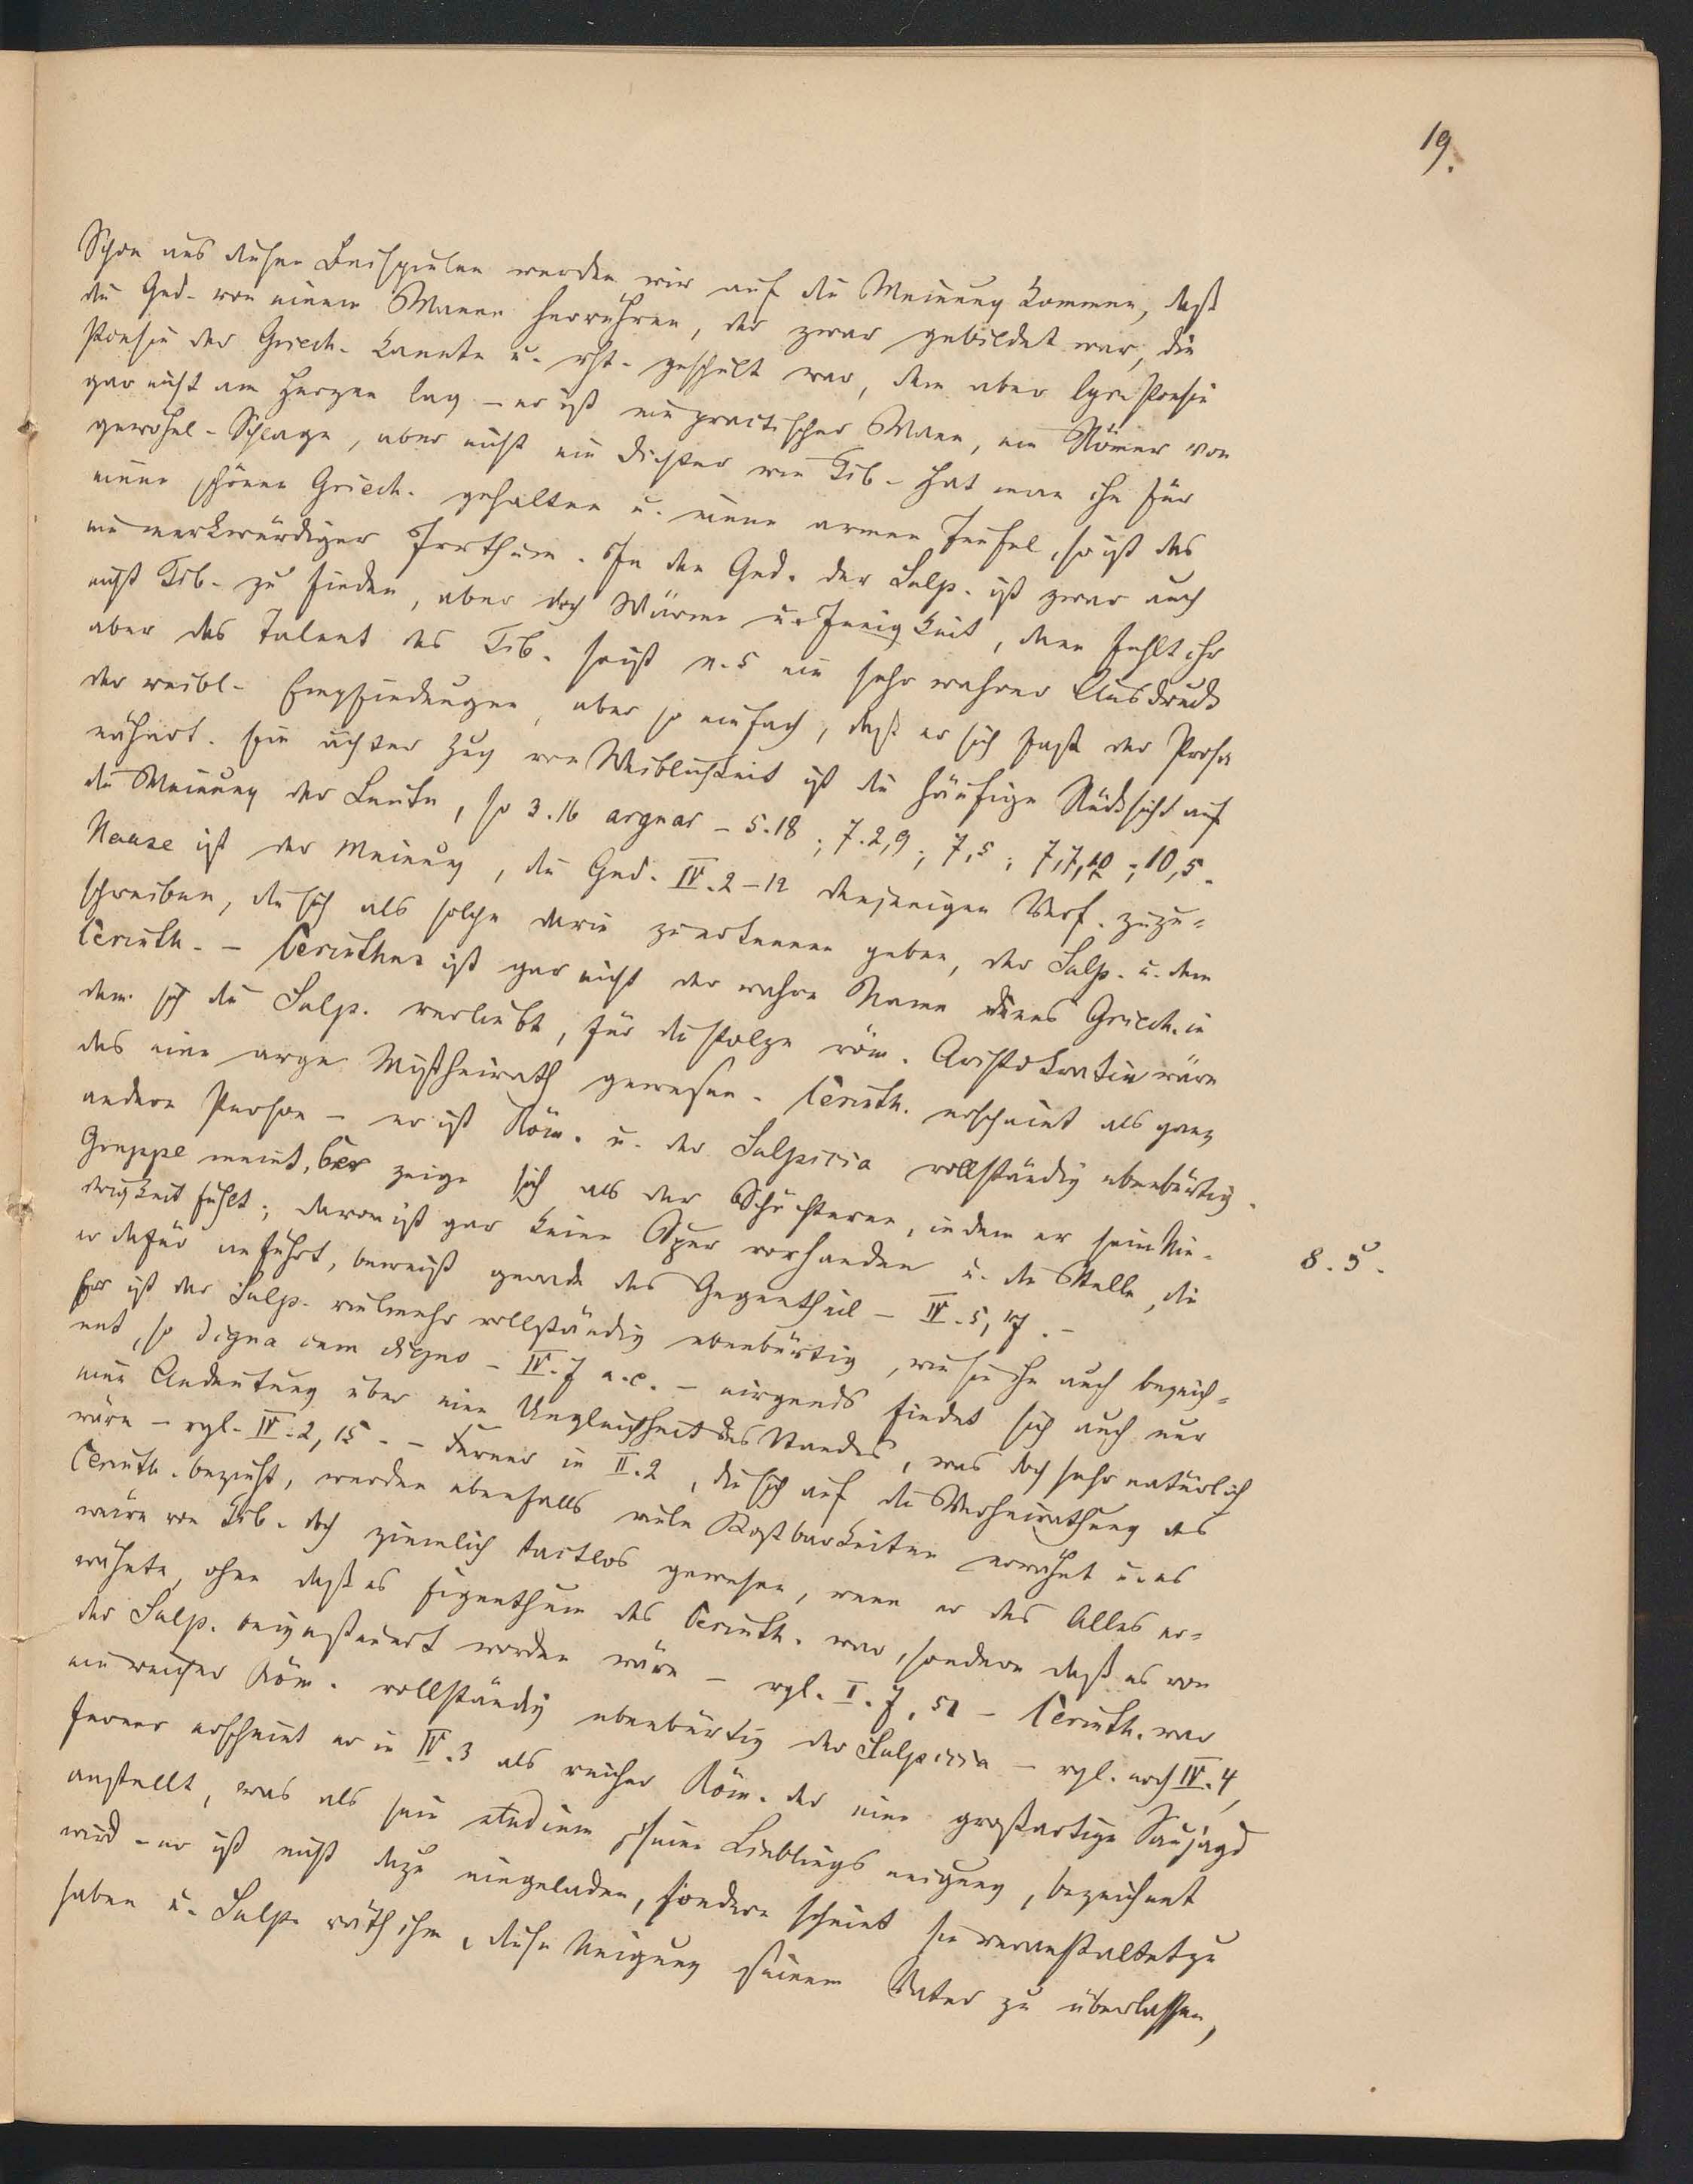 19.
Schon aus diesen Beispielen werden wir auf die Meinung kommen, daß
die Ged. von einem Manne herrühren, der zwar gebildet war, die
Poesie der Griech. kannte u. rht. geschult war, dem aber lyr. Poesie
gar nicht am Herzen lag – er ist ein practischer Mann, ein Römer von
gewöhnl. Schlage, aber nicht ein Dichter wie Tib. Hat man ihn für
einen schönen Griech. gehalten u. einen armen Teufel, so ist das
ein merkwürdiger Irrthum. In den Ged. der Sulp. ist zwar auch
nicht Tib. zu finden, aber doch Wärme u. Innigkeit, denn fehlt ihr
aber das Talent des Tib. so ist n. 5 ein sehr wahrer Ausdruck
der weibl. Empfindungen, aber so einfach, daß er sich fast der Prosa
nähert. Ein ächter Zug von Weiblichkeit ist die häufige Rücksicht auf
die Meinung der Leute, so 3.16 arguar – 5.18; 7.2,9; 7,5; 7,7,10; 10,5.
Haase ist der Meinung, die Ged. IV. 2–12 denjenigen Verf. zuzu=
schreiben, die sich als solche darin zu erkennen geben, der Sulp. u. dem
Cerinth. – Cerinthus ist gar nicht der wahre Name eines Griech. in
den sich die Sulp. verliebt, für die stolze röm. Aristokratin wäre
das eine arge Mißheirath gewesen. Cerinth. erscheint als ganz
andere Person – er ist Röm. u. der Sulpicia vollständig ebenbürtig.
Gruppe meint, Cer zeige sich als der Schüchterne, indem er sein Nie-
drigkeit fühlt; davon ist gar keine Spur vorhanden u. die Stelle, die
8. 5.
er dafür anführt, beweist gerade das Gegentheil – IV. 5, 17. –
Er ist der Sulp. vielmehr vollständig ebenbürtig, wie sie ihn auch bezeich=
net, so digna cum digno – IV. 7 a. e. – nirgends findet sich auch nur
eine Andeutung über eine Ungleichheit des Standes, was doch sehr natürlich
wäre – vgl. IV. 2, 15. – Ferner in II. 2, die sich auf die Verheirathung des
Cerinth. bezieht, werden ebenfalls viele Kostbarkeiten erwähnt u. es
wäre von Tib. doch ziemlich tactlos gewesen, wenn er das Alles er=
wähnte, ohne daß es Eigenthum des Cerinth. war, sondern daß es von
der Sulp. beigesteuert worden wäre – vgl. I. 7, 51 – Cerinth. war
ein reicher Röm. vollständig ebenbürtig der Sulpicia – vgl. noch IV. 4,
ferner erscheint er in IV. 3 als reicher Röm. der eine großartige Saujagd
anstellt, was als sein studium, seine Lieblingsneigung, bezeichnet
wird – er ist nicht dazu eingeladen, sondern scheint sie veranstaltet zu
haben u. Sulp. räth ihm, diese Neigung seinem Vater zu überlassen,